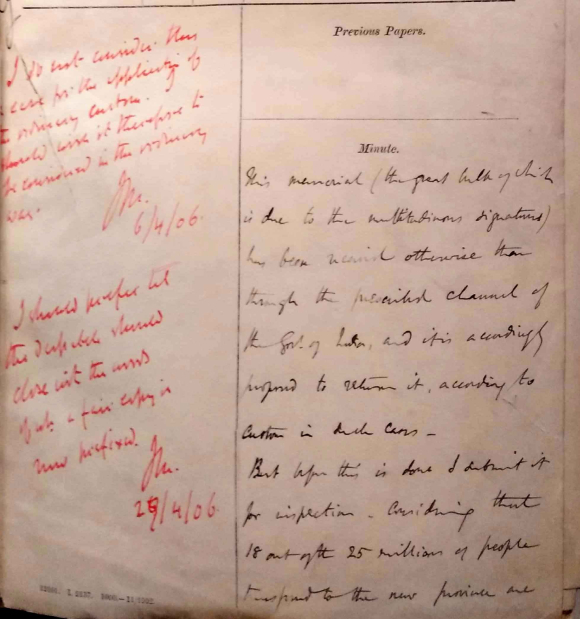 I do not consider this
a case for the application of
the ordinary custom. I
should wish it therefore to
be considered in the ordinary
way.
JM.
6/4/06.
I should prefer that
the despatch should
close with the words
of wh. a fair copy is
now prefixed.
JM.
29/4/06.
Previous Papers.
Minute.
This memorial (the great bulk of which
is due to the multitudinous signatures)
has been received otherwise than
through the prescribed channel of
the Govt. of India, and it is accordingly
proposed to return it, according to
custom in such cases –
But before this is done I submit it
for inspection – Considering that
18 out of the 25 millions of people
transferred to the new province are